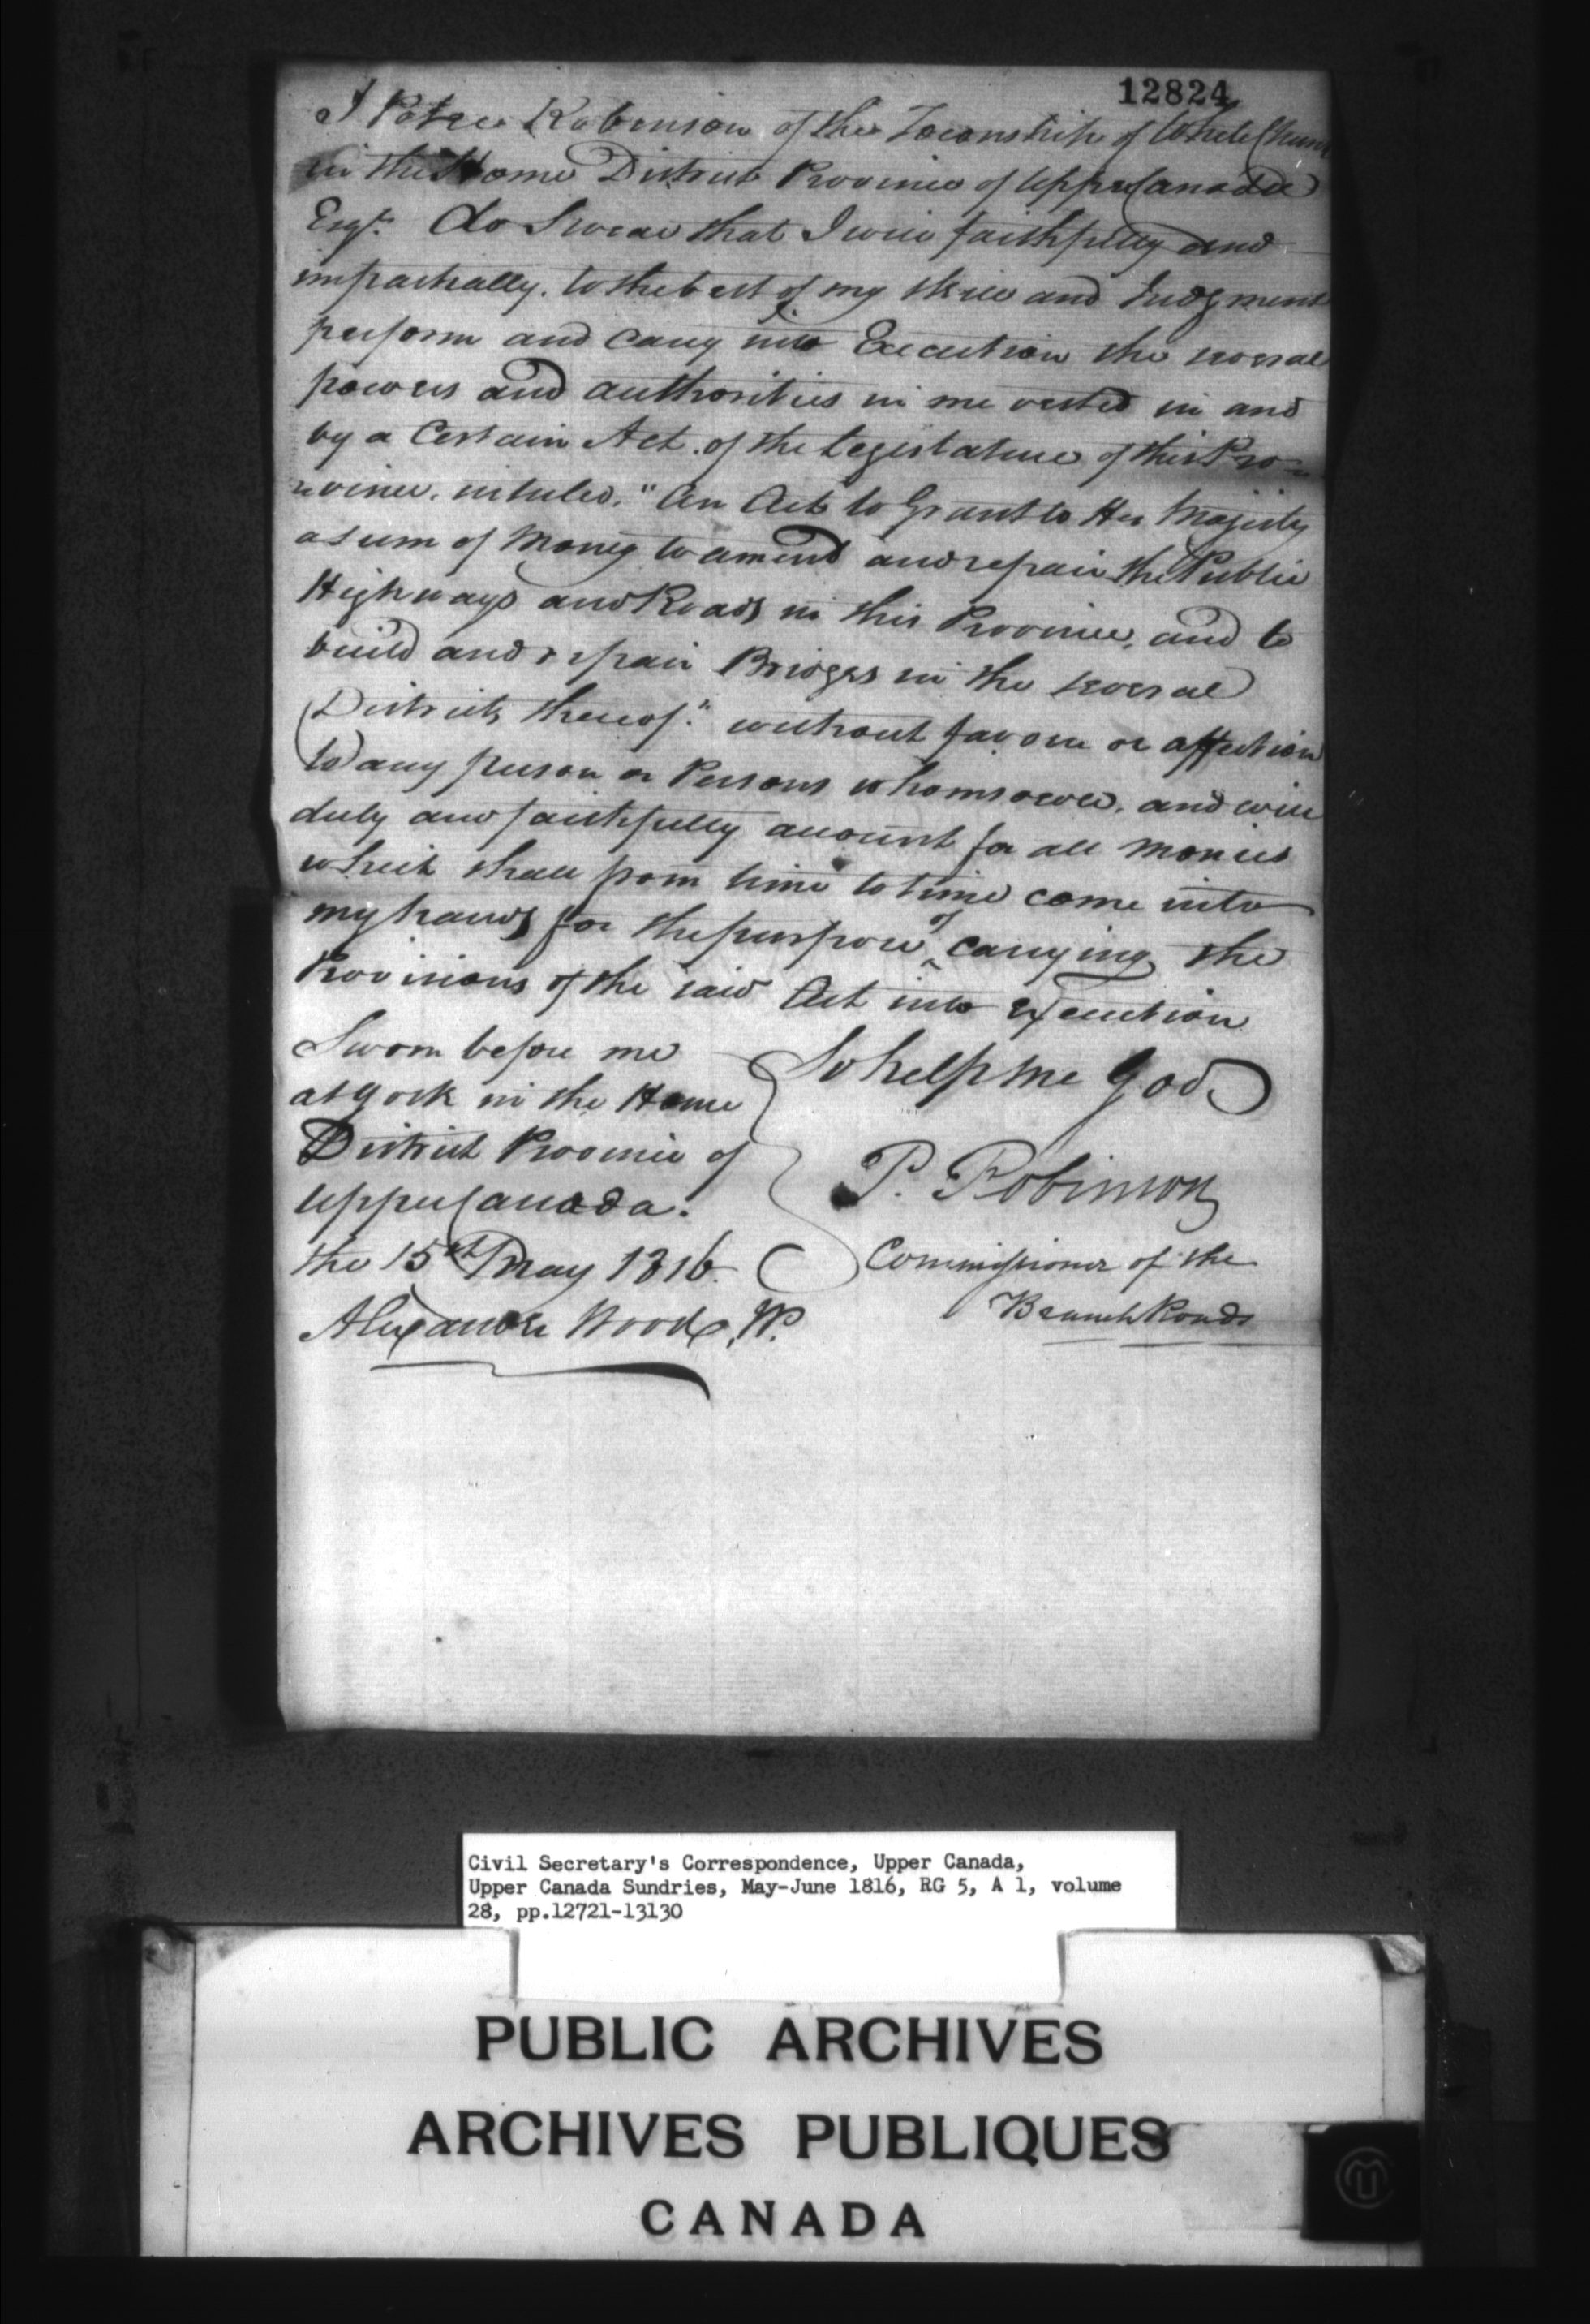 12824
I Peter Robinson of the Township of White Church
in the Home District Province of Upper Canada
Esqr. do Swear that I will faithfully and
impartially. to the best of my skill and Judgment
perform and carry into Execution the several
powers and authorities in me vested in and
by a Certain Act. of the Legislature of this Pro-
=vince. intituled. "An Act to Grant to His Majesty
a Sum of Money to amend and repair the Public
Highways and Roads in this Province, and to
build and repair Bridges in the several
Districts thereof." without favour or affection
to any person or Persons whomsoever, and will
duly and faithfully account for all Monies
which shall from time to time come into
my hands for the purpose of carrying the
Provisions of the said Act into Execution
So help me God
Sworn before me
at York in the Home
District Province of
Upper Canada.
the 15th May 1816.
Alexander Wood, JP.
P. Robinson
Commissioner of the
Branch Roads
Civil Secretary's Correspondence, Upper Canada,
Upper Canada Sundries, May-June 1816, RG 5, A 1, volume
28, pp.12721-13130
PUBLIC ARCHIVES
ARCHIVES PUBLIQUES
CANADA